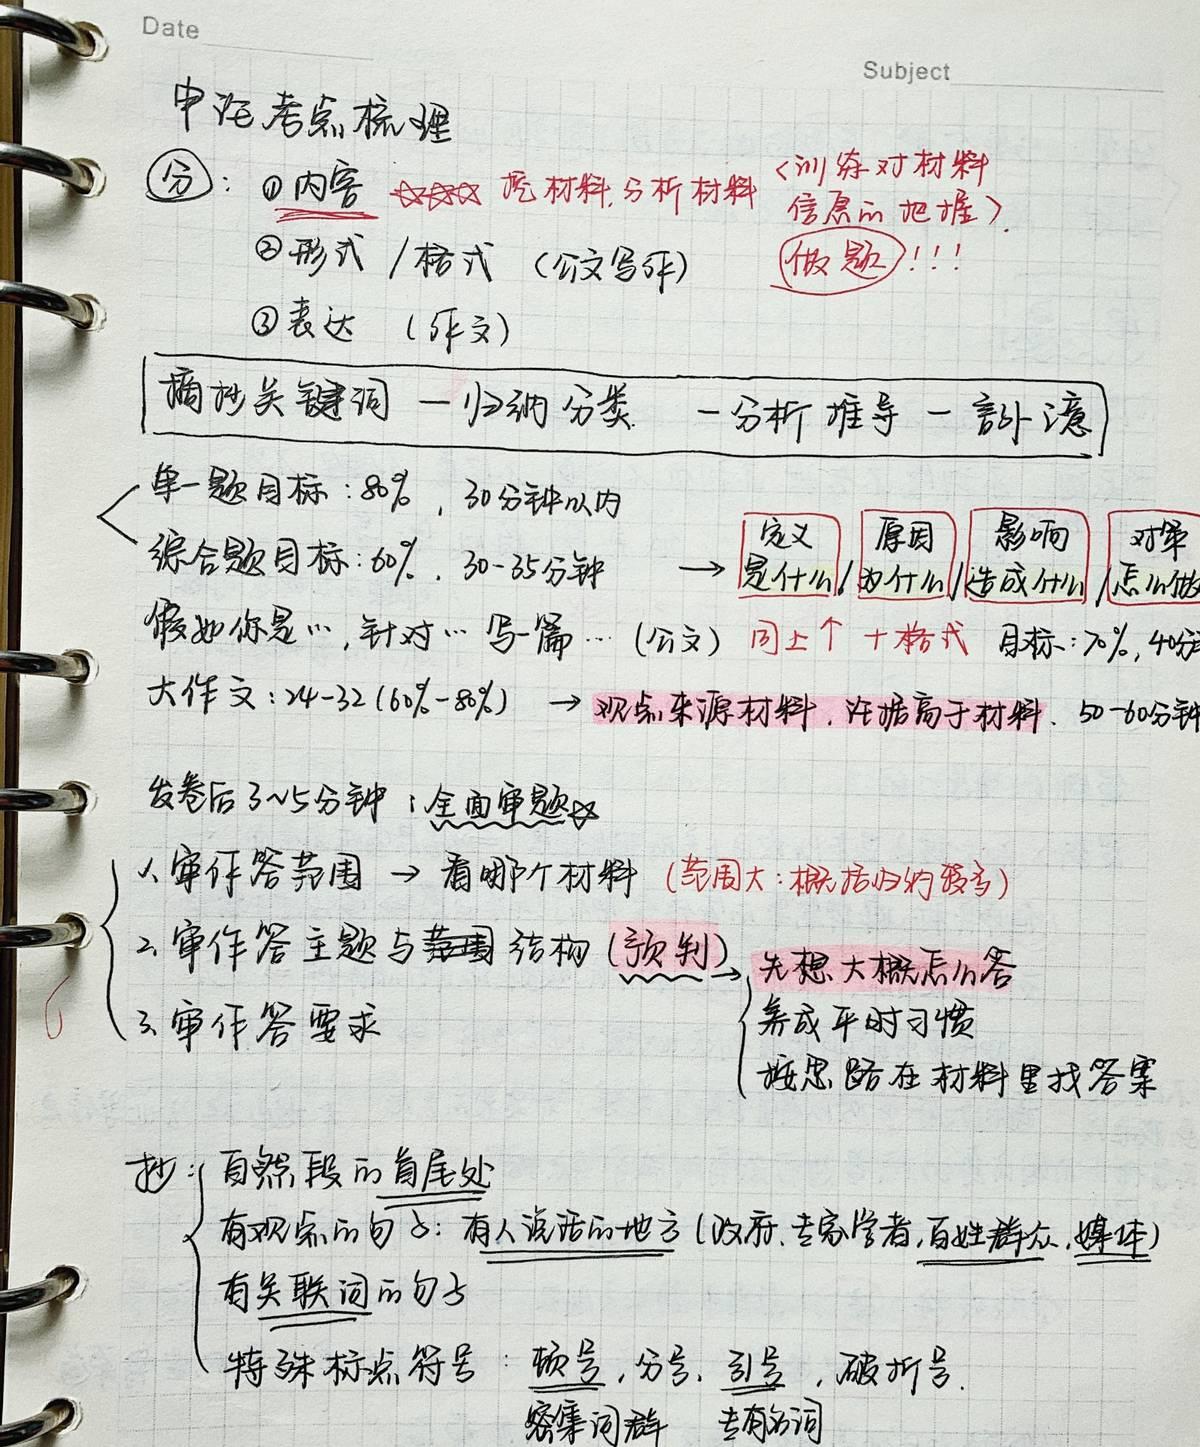 Date
Subject
申论考点梳理
分：①内容 ☆☆☆ 挖材料.分析材料 <训练对材料
信息的把握>.
②形式/格式（公文写作） 做题!!!
③表达（作文）
摘抄关键词 — 归纳分类. — 分析推导 — 
单一题目标：80%，30分钟以内
综合题目标：60%，30-35分钟 → 定义 原因 影响 对策
是什么/为什么/造成什么/怎么做
假如你是…，针对…写一篇…（公文）同上↑ +格式 目标：70%，40分
大作文：24-32（60%-80%）→ 观点来源材料，论据高于材料. 50-60分钟
发卷后3~5分钟：全面审题☆
1.审作答范围 → 看哪个材料（范围大：概括归纳较多）
2.审作答主题与结构（预判）→ 先想大概怎么答
养成平时习惯
3.审作答要求
按思路在材料里找答案
抄：自然段的首尾处
有观点的句子：有人说话的地方（政府、专家学者，百姓群众，媒体）
有关联词的句子
特殊标点符号：顿号，分号、引号，破折号.
密集词群 专有名词